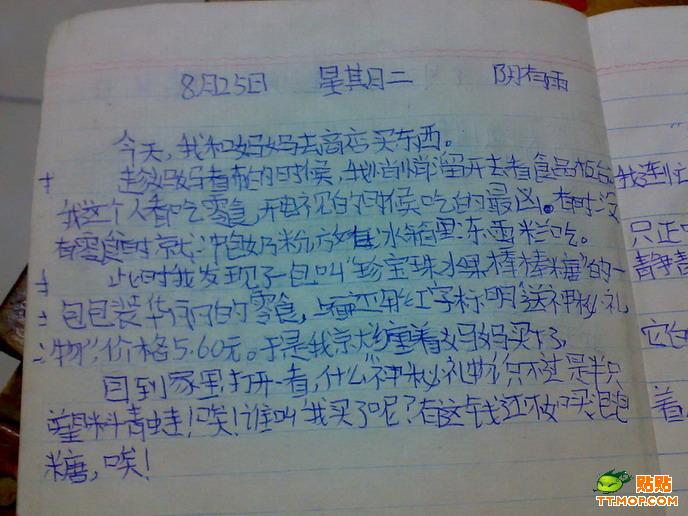 8月25日 星其日二 阴有雨
今天,我和妈妈去商店买东西。
趁妈妈看鞋的时候,我悄悄溜开去看食品柜台。
我这个人看吃零食,开电视的时候吃的最凶。有时没
有零食时就冲包奶粉,放在冰箱里东西拦吃。
此时我发现了一包叫“珍宝珠水果棒棒糖”的一
包包装华闪闪的零食,上面还用红字标明“送神秘礼
物”,价格5.60元。于是我就缠着妈妈买下了。
回到家里,打开一看,什么“神秘礼物”只不过是半只
塑料青蛙!唉!谁叫我买了呢?有这钱还不如买泡泡
糖,唉!
我连忙
只正
青争青
它白
着
贴贴
TT.MOP.COM